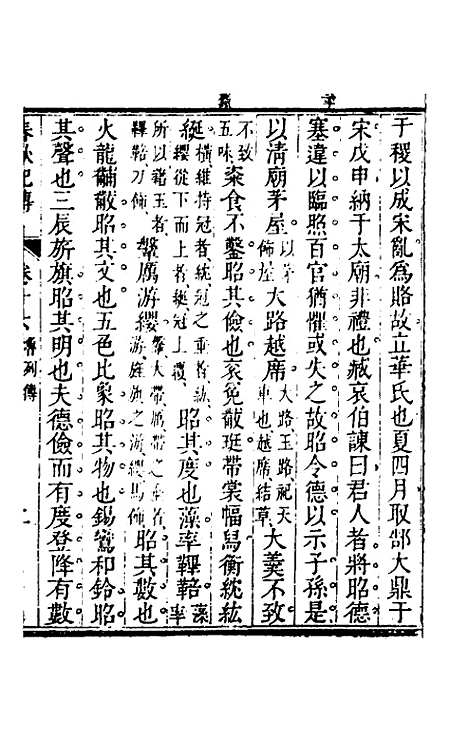 于稷以成宋亂爲賂故立華氏也夏四月取郜大鼎于
宋戊申納于太廟非禮也臧哀伯諫曰君人者將昭德
塞違以臨照百官猶懼或失之故昭令德以示子孫是
以淸廟茅屋以茅飾屋大路越席大路玉路祀天車也越席結草大羹不致
不致五味粢食不鑿昭其儉也袞冕黻珽帶裳幅舄衡紞紘
綖橫維持冠者紞冠之垂者紘纓從下而上者綖冠上覆昭其度也藻率鞞鞛藻率
所以藉玉者鞞鞛刀飾鞶厲游纓鞶大帶厲帶之垂者游旌旗之游纓馬飾昭其數也
火龍黼黻昭其文也五色比象昭其物也鍚鸞和鈴昭
其聲也三辰旂旗昭其明也夫德儉而有度登降有數
春秋紀傳
卷十六
列傳